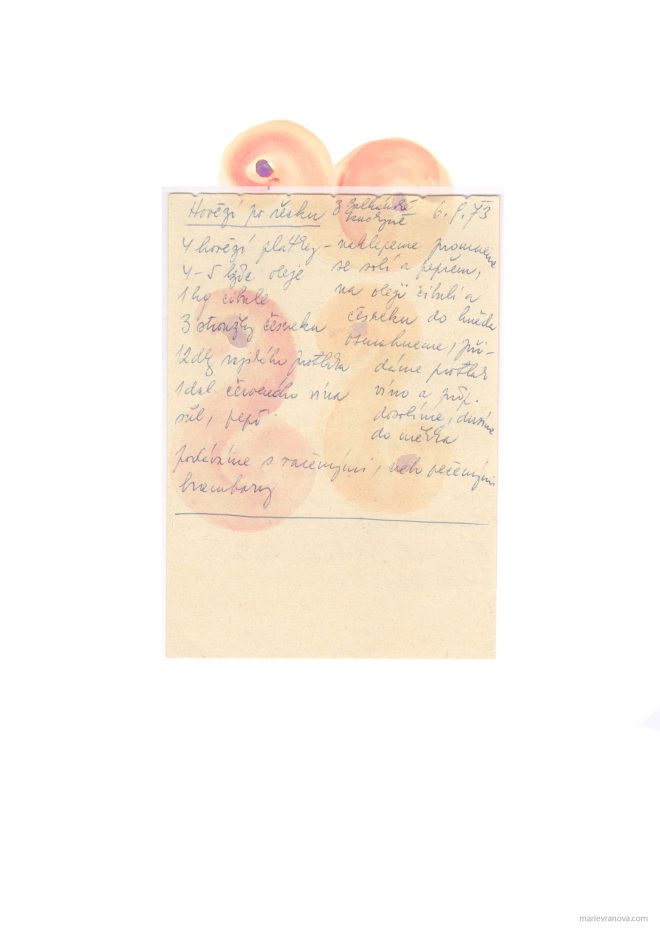 Hovězí po řecku z Balkánské kuchyně 6. 9. 73
4 hovězí plátky - naklepeme promneme
4-5 lžic oleje se solí a pepřem,
1 kg cibule na oleji cibuli a
3 stroužky česneku česneku do hněda
12 dkg rajského protlaku osmahneme, při-
1 dcl červeného vína dáme protlak
sůl, pepř víno a příp.
dosolíme, dusíme
do měkka
podáváme s vařenými, neb pečenými
brambory
marievranova.com